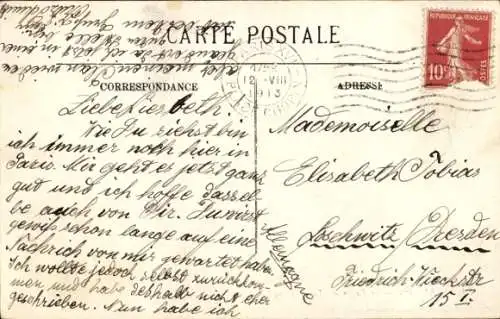 CARTE POSTALE
CORRESPONDANCE
ADRESSE
REPUBLIQUE FRANÇAISE
10c
POSTES
12 VIII
1913
Liebe Liesbeth.
Wie Du siehst bin
ich immer noch hier in
Paris. Mir geht es jetzt ganz
gut und ich hoffe dassel
be auch von Dir. Du wirst
gewiss schon lange auf eine
Nachricht von mir gewartet haben.
Ich wollte jedoch selbst zurückkom
men und habe deshalb nicht eher
geschrieben. Nun habe ich
aber meinen Plan wieder
geändert da ich jetzt in einer
Stelle bin
Mademoiselle
Elisabeth Tobias
Loschwitz Dresden
Friedrich-Wieckstr
15 I.
Allemagne